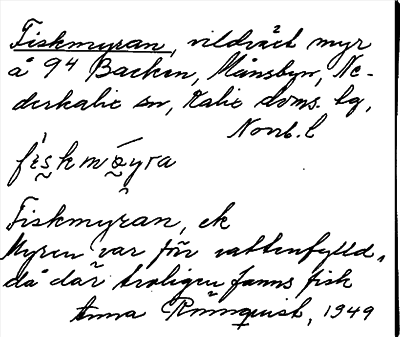 Fiskmyran, vildväxt myr
å 94 Backen, Månsbyn, Ne-
derkalix sn, Kalix doms. lg,
Norrb. l
Fiskmyran, ek
Myren var för vattenfylld,
då där troligen fanns fisk
Anna Rönnquist, 1949